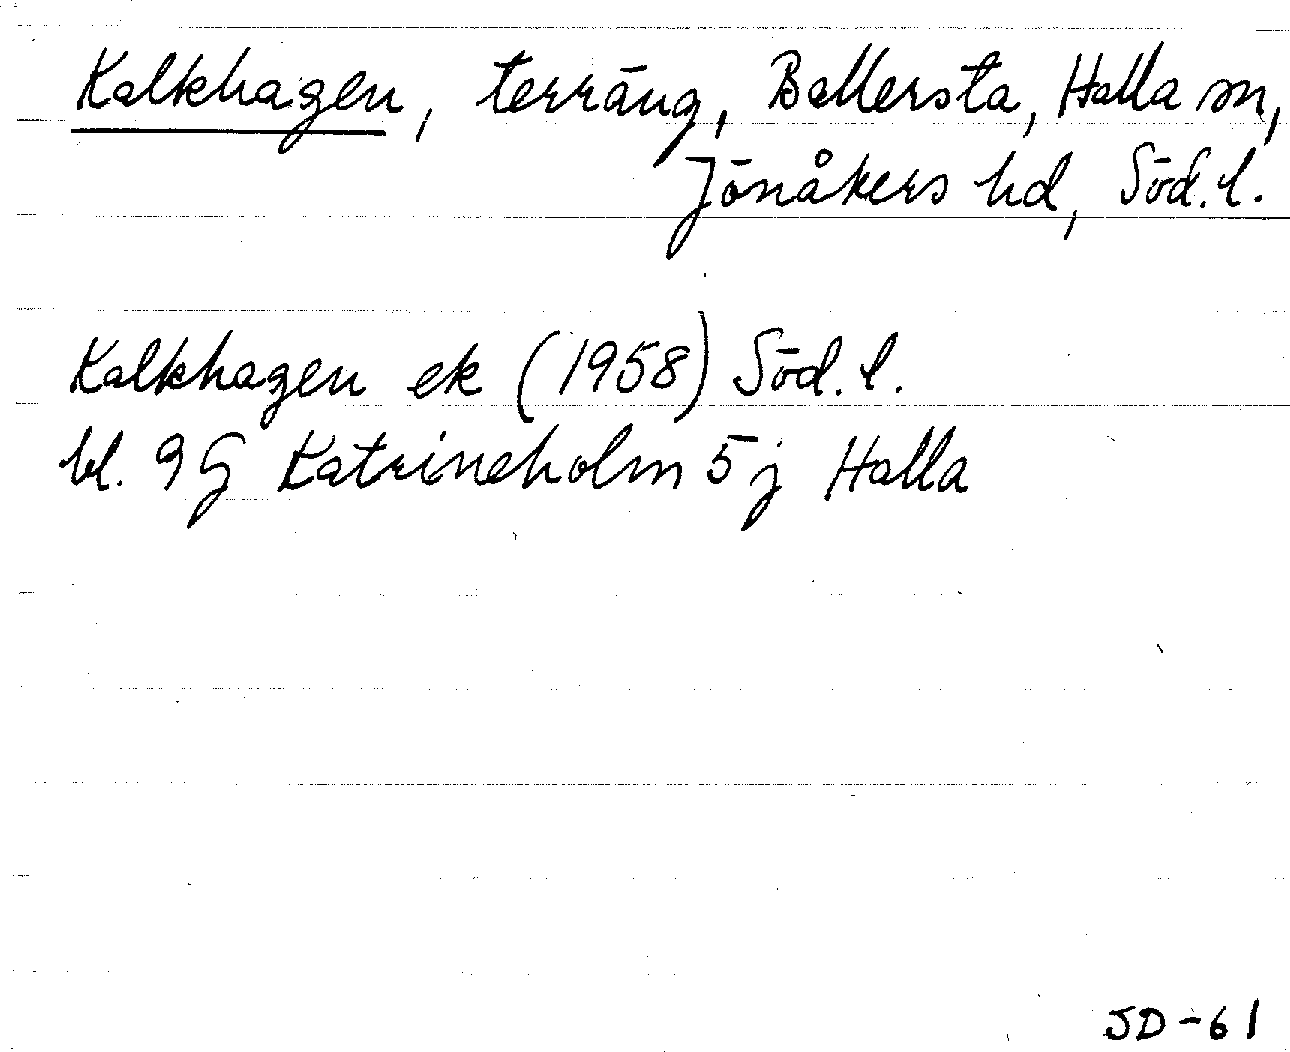 Kalkhagen, terräng, Ballersta, Halla sn,
Jönåkers hd, Söd. l.
Kalkhagen ek (1958) Söd. l.
bl. 9G Katrineholm 5j Halla
SD-61